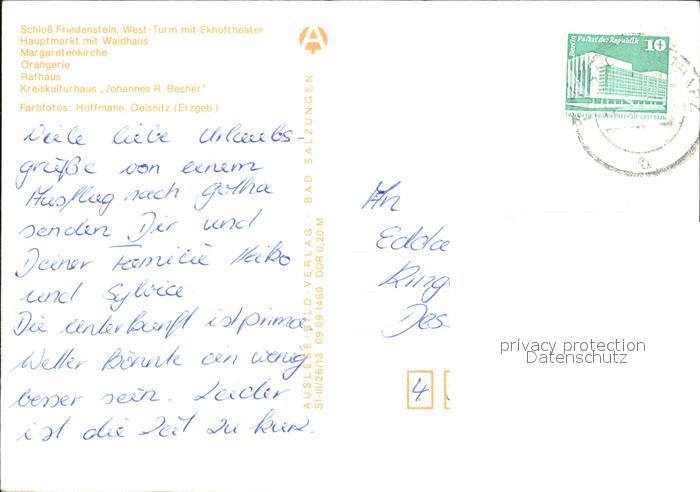 Schloß Friedenstein, West-Turm mit Ekhoftheater
Hauptmarkt mit Waidhaus
Margaretenkirche
Orangerie
Rathaus
Kreiskulturhaus „Johannes R. Becher"
Farbfotos: Hoffmann, Oelsnitz (Erzgeb.)
Viele liebe Urlaubs-
grüße von einem
Ausflug nach Gotha
senden Dir und
Deiner Familie Heiko
und Sylvia.
Die Unterkunft ist prima
Wetter könnte ein wenig
besser sein. Leider
ist die Zeit zu kurz.
AUSLESE-BILD-VERLAG · BAD SALZUNGEN
S1-III/26/13 09 09 1460 DDR 0,20 M
Berlin Palast der Republik 10
An
Edda
Ring
Des
4
privacy protection
Datenschutz